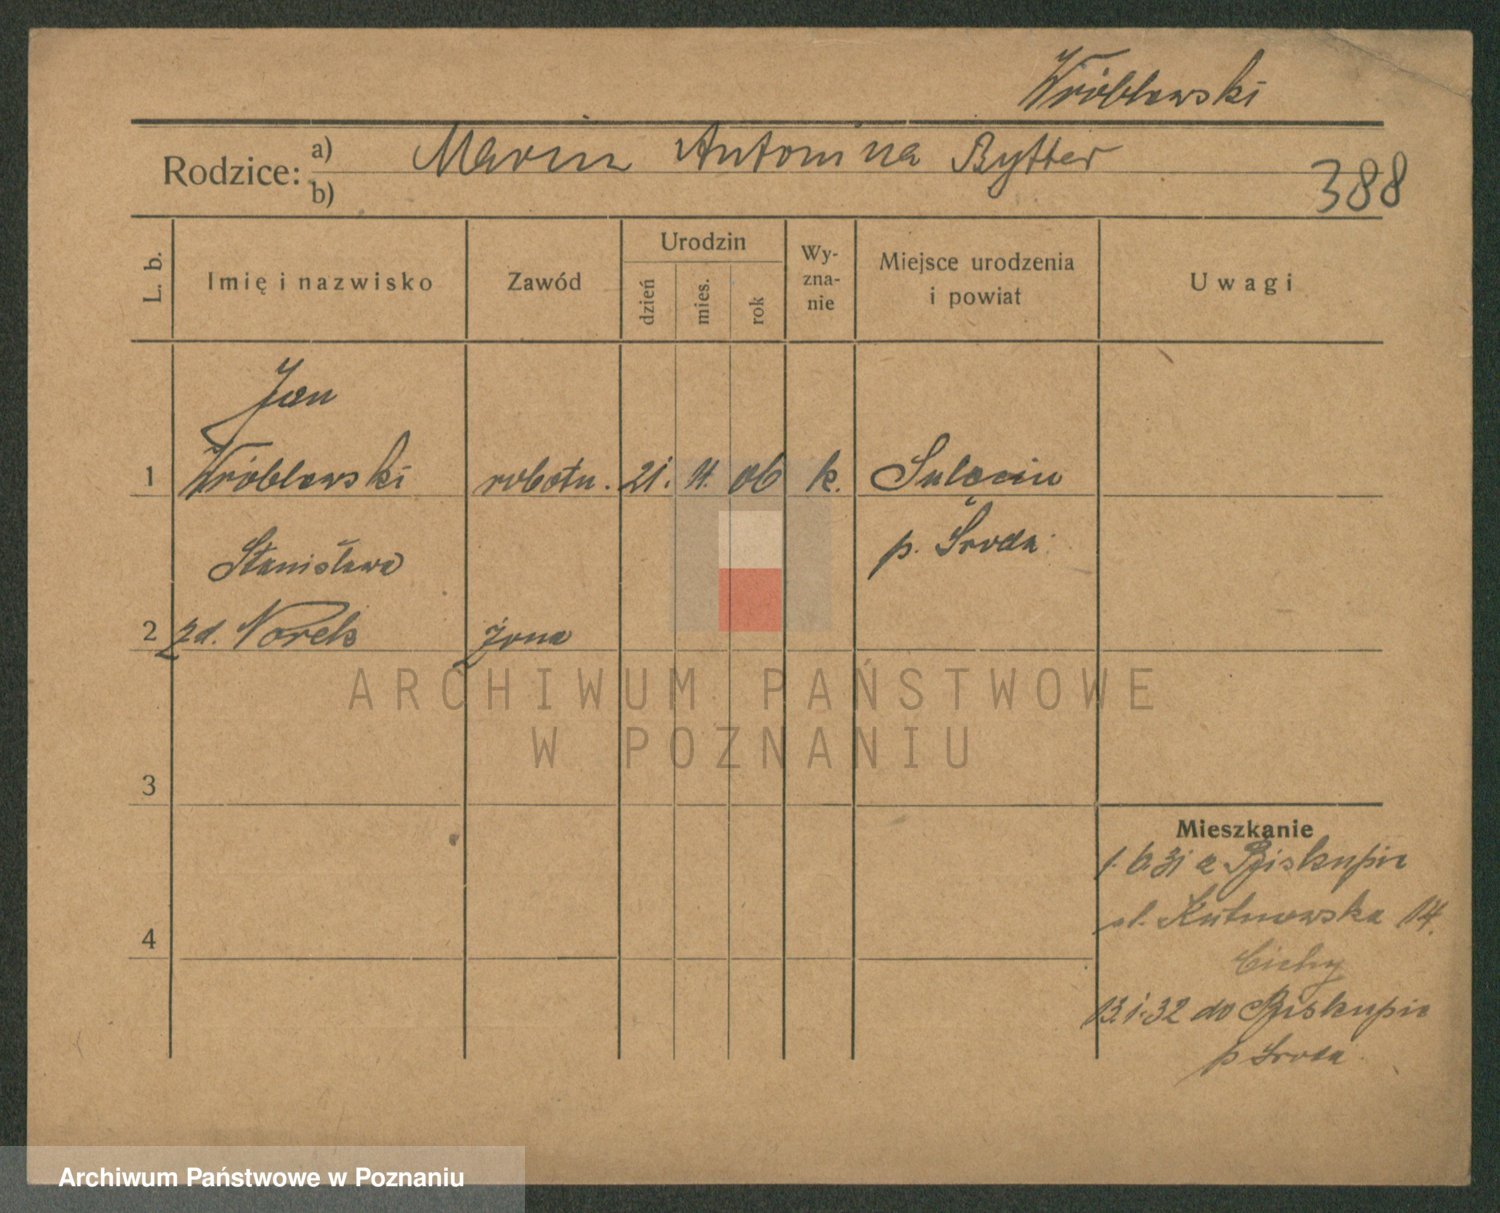 Wróblewski
Rodzice: a) Marcin Antonina Rytter
b)
388
L. b.
Imię i nazwisko
Zawód
Urodzin
dzień
mies.
rok
Wy-
zna-
nie
Miejsce urodzenia
i powiat
Uwagi
Jan
1 Wróblewski robotn. 21. 11. 06 k. Sulęcin
p. Środa.
Stanisława
2 zd. Norek żona
3
4
Mieszkanie
1. 6.31 z Biskupic
ul. Kutnowska 14.
Cichy
13.1.32 do Biskupic
p Środa.
ARCHIWUM PAŃSTWOWE
W POZNANIU
Archiwum Państwowe w Poznaniu